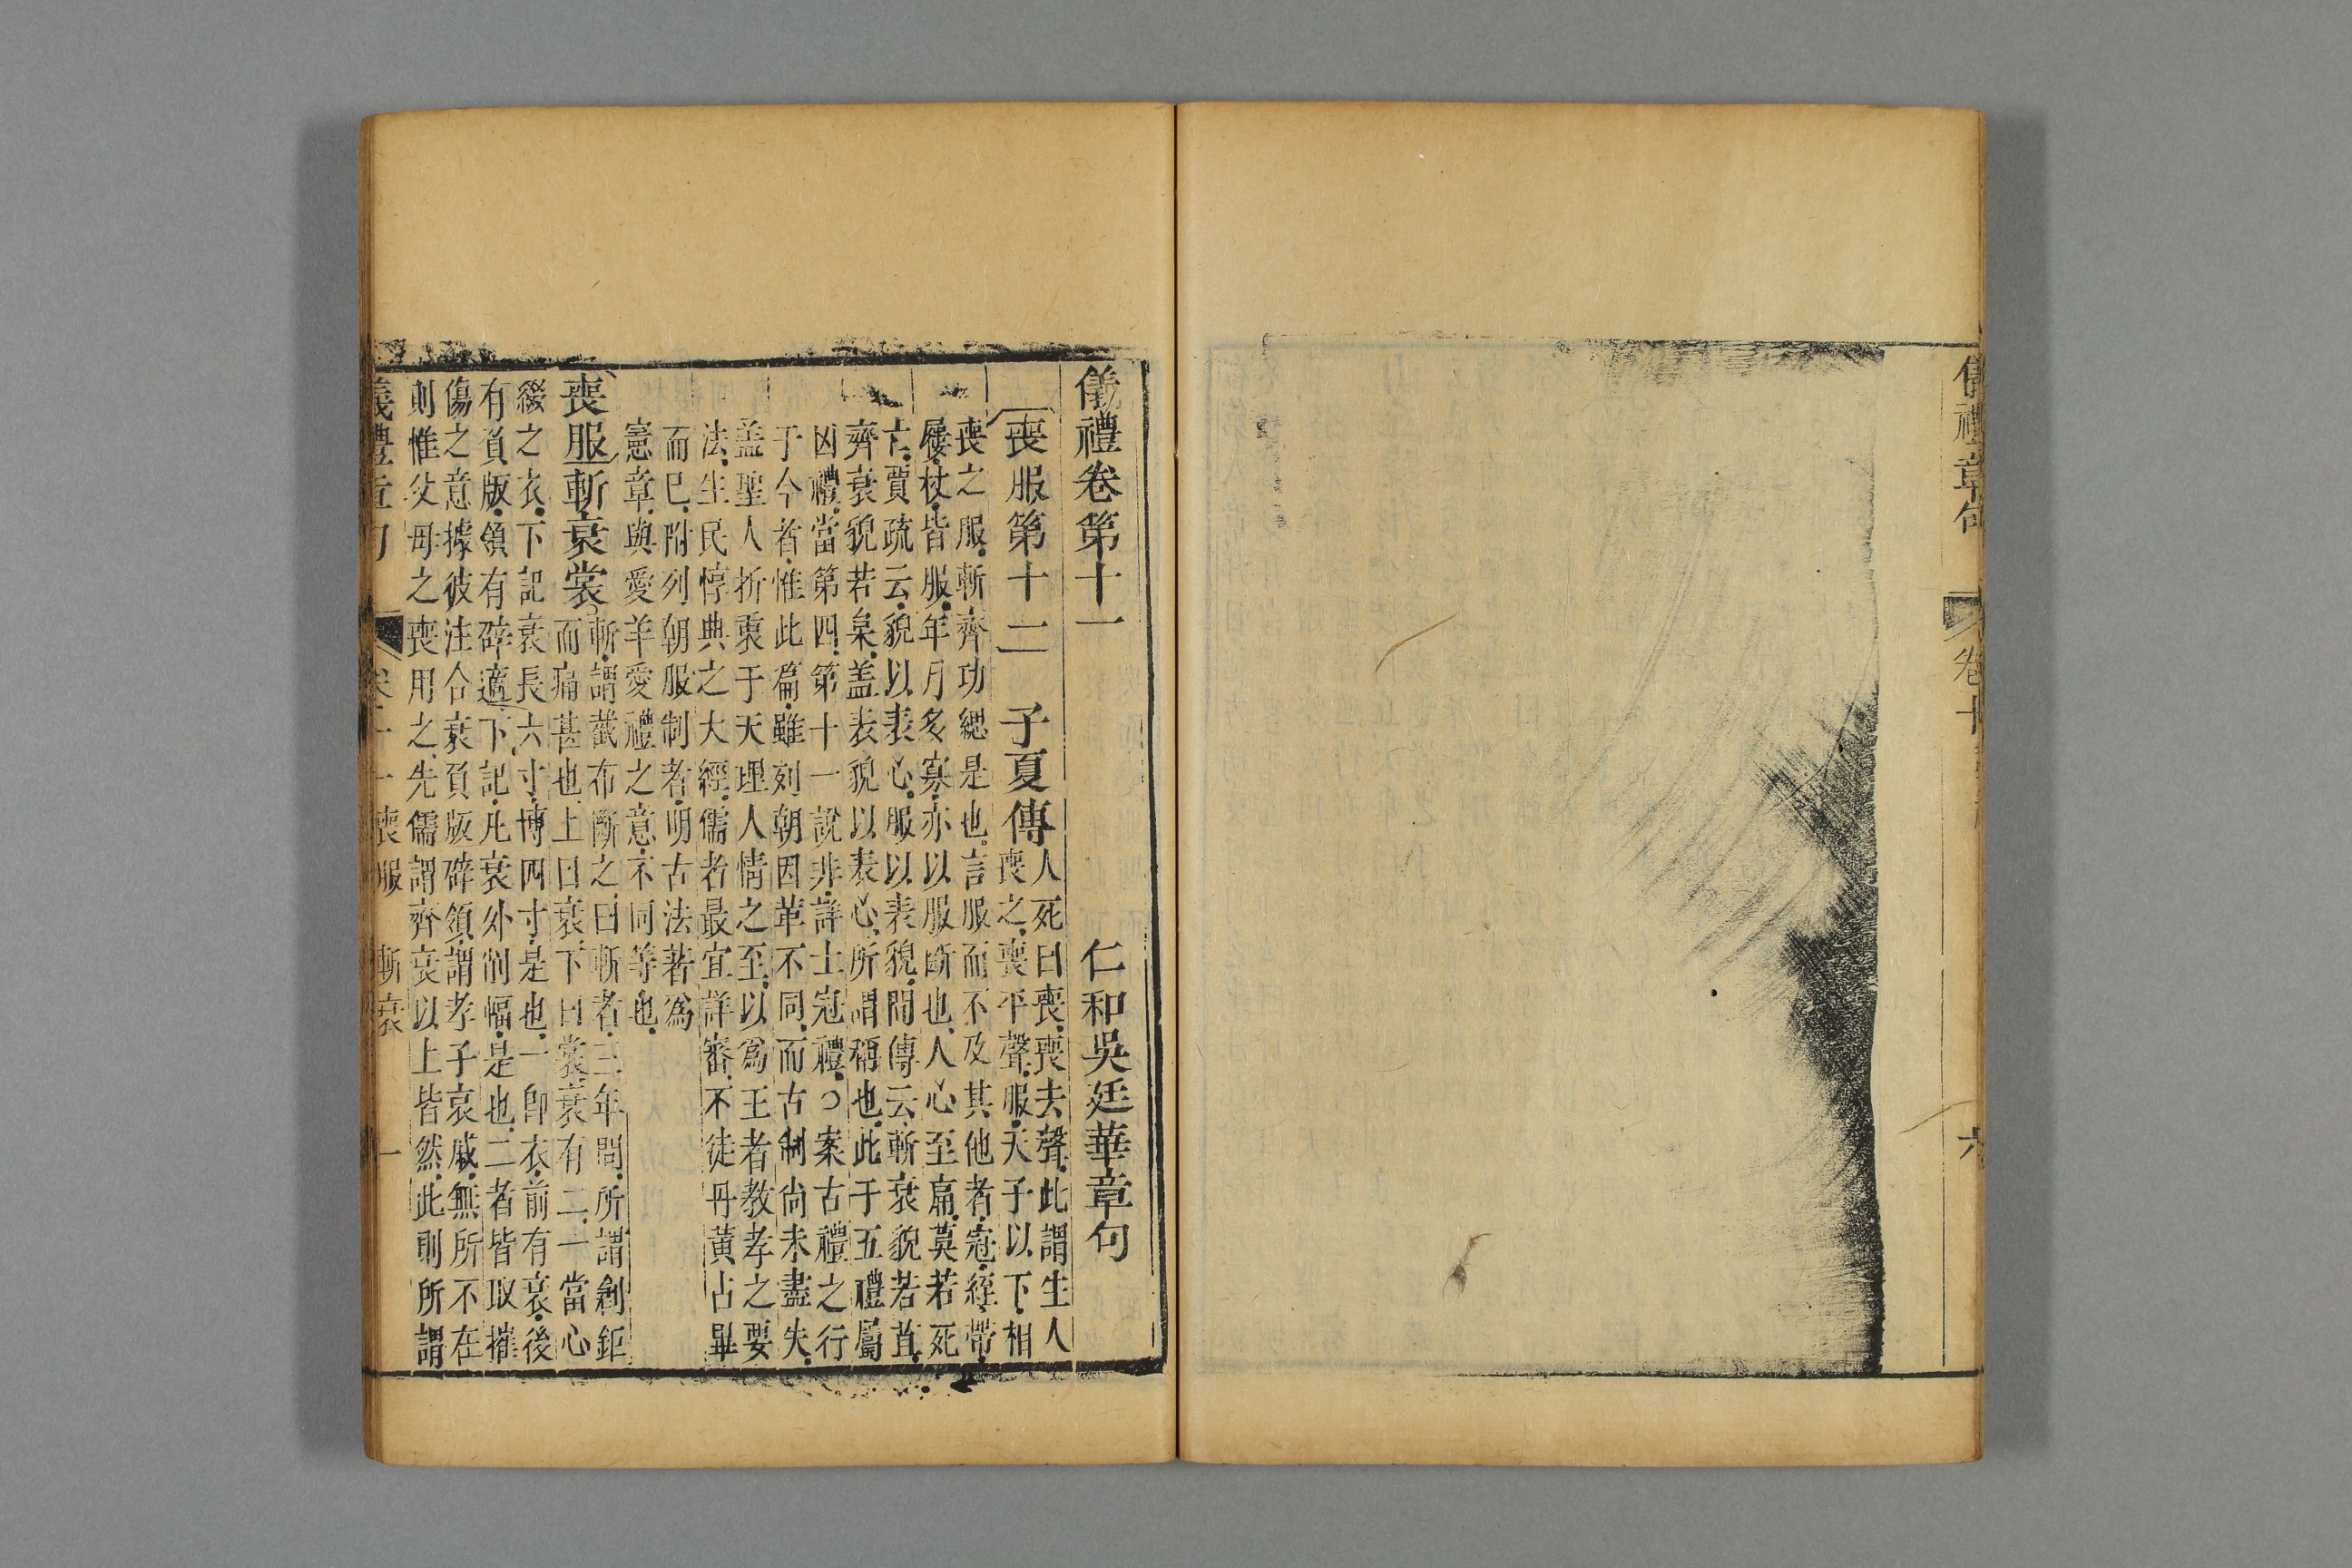 儀禮章句
卷十
六
儀禮卷第十一
仁和吳廷華章句
喪服第十一
子夏傳
人死曰喪喪去聲此謂生人
喪之喪平聲服天子以下相
喪之服斬齊功緦是也言服而不及其他者冠絰帶
屨杖皆服年月多寡亦以服斷也人心至扁莫若死
亡賈疏云貌以表心服以表貌間傳云斬衰貌若苴
齊衰貌若枲盖表貌以表心所謂稱也此于五禮屬
凶禮當第四第十一說非詳士冠禮○案古禮之行
于今者惟此篇雖列朝因革不同而古制尚未盡失
盖聖人折衷于天理人情之至以爲王者教孝之要
法生民惇典之大經儒者最宜詳審不徒丹黃占畢
而已附列朝服制者明古法若爲
憲章與愛羊愛禮之意不同等也
喪服斬衰裳
斬謂截布斷之曰斬者三年問所謂創鉅
而痛甚也上曰衰下曰裳衰有二一當心
綴之衣下記衰長六寸博四寸是也一卽衣前有衰後
有負版領有辟適下記凡衰外削幅是也二者皆取摧
傷之意據彼注合衰負版辟領謂孝子哀戚無所不在
則惟父母之喪用之先儒謂齊衰以上皆然此則所謂
儀禮章句
卷十一喪服
斬衰
一